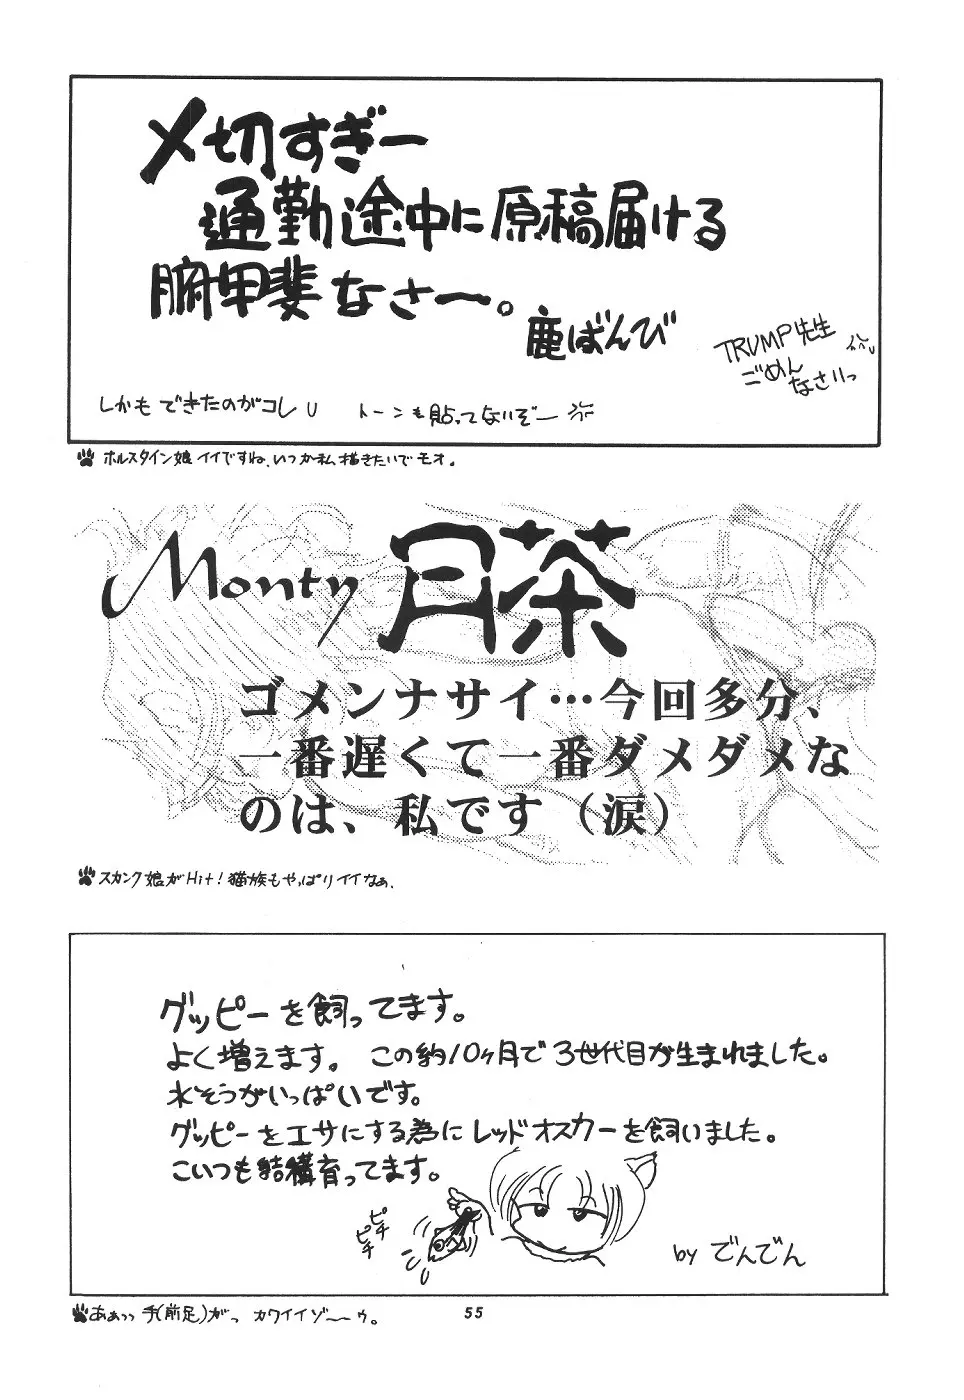 〆切すぎー
通勤途中に原稿届ける
腑甲斐なさー。
鹿ばんび
TRUMP先生
ごめん
なさいっ
しかもできたのがコレ
トーンも貼ってないぞー
ホルスタイン娘イイですね、いつか私、描きたいでモオ。
Monty 月茶
ゴメンナサイ…今回多分、
一番遅くて一番ダメダメな
のは、私です（涙）
スカンク娘がHit！猫族もやっぱりイイなぁ、
グッピーを飼ってます。
よく増えます。 この約10ヶ月で3世代目が生まれました。
水そうがいっぱいです。
グッピーをエサにする為にレッドオスカーを飼いました。
こいつも結構育ってます。
ピチ
ピチ
by でんでん
あぁっっ 手(前足)がっ カワイイゾ〜〜ゥ。
55